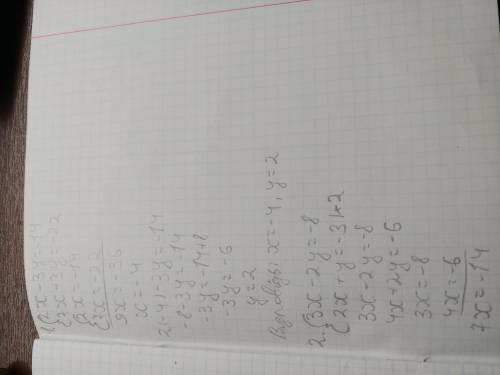 1. {2x-3y=-14
{7x+3y=-22
{2x=-14
{7x=-22
9x=-36
x=-4
2(-4)-3y=-14
-8-3y=-14
-3y=-14+8
-3y=-6
y=2
x=-4, y=2
2. {3x-2y=-8
{2x+y=-3 |*2
3x-2y=-8
4x+2y=-6
3x=-8
4x=-6
7x=-14